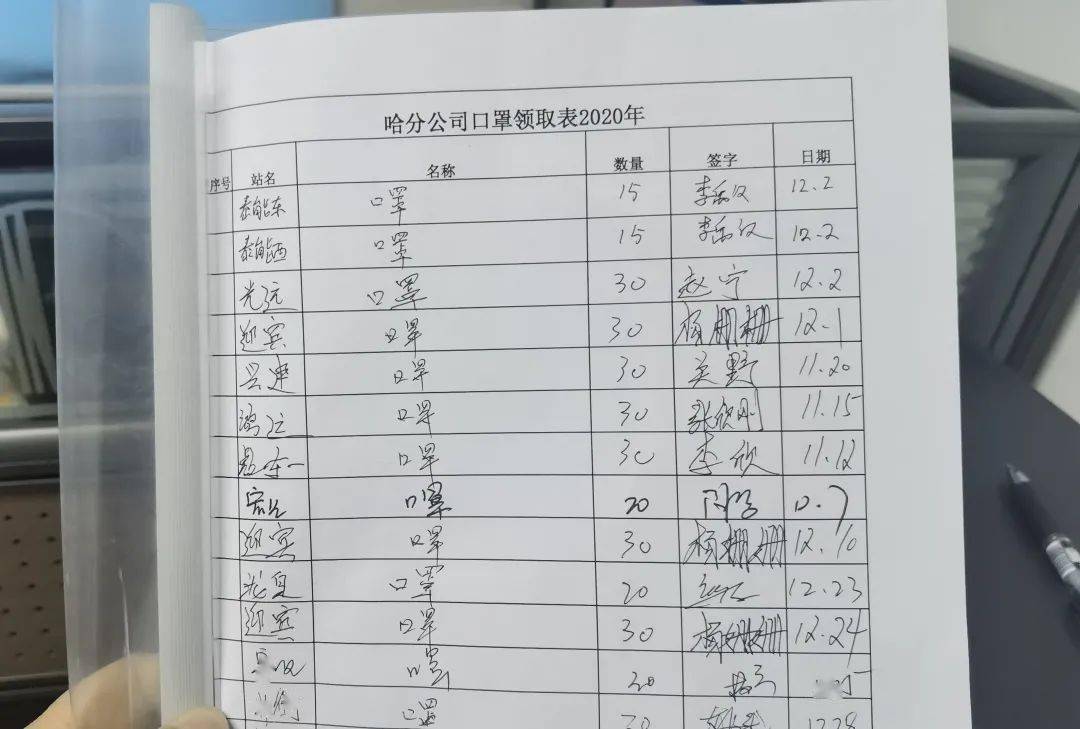 哈分公司口罩领取表2020年
序号 站名 名称 数量 签字 日期
泰能东 口罩 15 12.2
泰能西 口罩 15 12.2
光远 口罩 30 赵宁 12.2
迎宾 口罩 30 杨栅栅 12.1
兴建 口罩 30 关野 11.20
鸿运 口罩 30 张欣刚 11.15
口罩 30 李欣 11.12
口罩 20
迎宾 口罩 30 杨栅栅 12.10
口罩 20 12.23
迎宾 口罩 30 杨栅栅 12.24
口罩 20
口罩 20 12.28